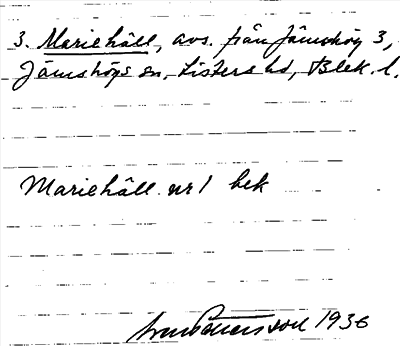 3. Mariehäll, avs. från Jämshög 3,
Jämshögs sn, Listers hd, Blek. l.
Mariehäll nr 1 bek
1936